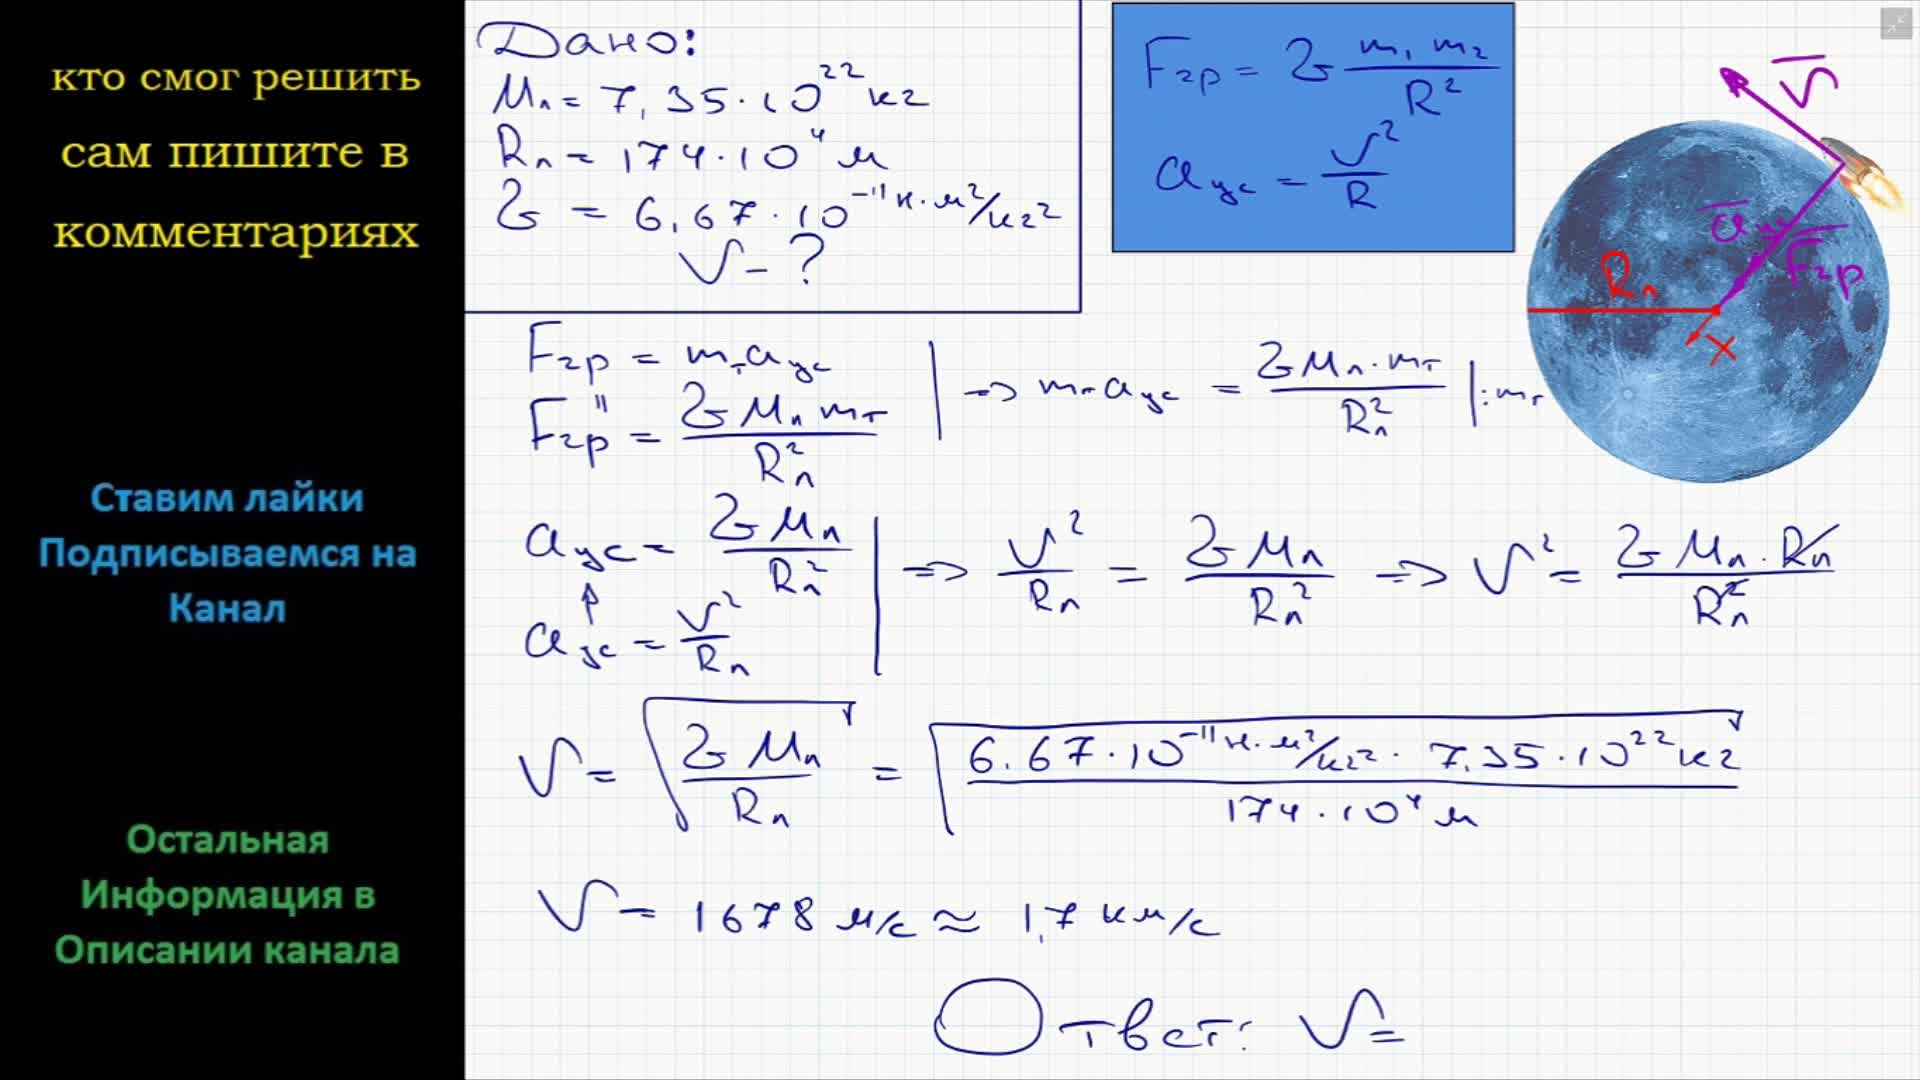 кто смог решить
сам пишите в
комментариях
Ставим лайки
Подписываемся на
Канал
Остальная
Информация в
Описании канала
Дано:
Mл = 7,35·10²² кг
Rл = 174·10⁴ м
G = 6,67·10⁻¹¹ Н·м²/кг²
V - ?
Fгр = G m₁ m₂ / R²
aцс = V² / R
V
a
Fгр
Rл
X
Fгр = mт aцс
Fгр = G Mл mт / Rл²
=> mт aцс = G Mл · mт / Rл² | : mт
aцс = G Mл / Rл²
aцс = V² / Rл
=> V² / Rл = G Mл / Rл² => V² = G Mл · Rл / Rл²
V = √(G Mл / Rл) = √(6.67·10⁻¹¹ Н·м²/кг² · 7,35·10²² кг / 174·10⁴ м)
V = 1678 м/с ≈ 1,7 км/с
Ответ: V =